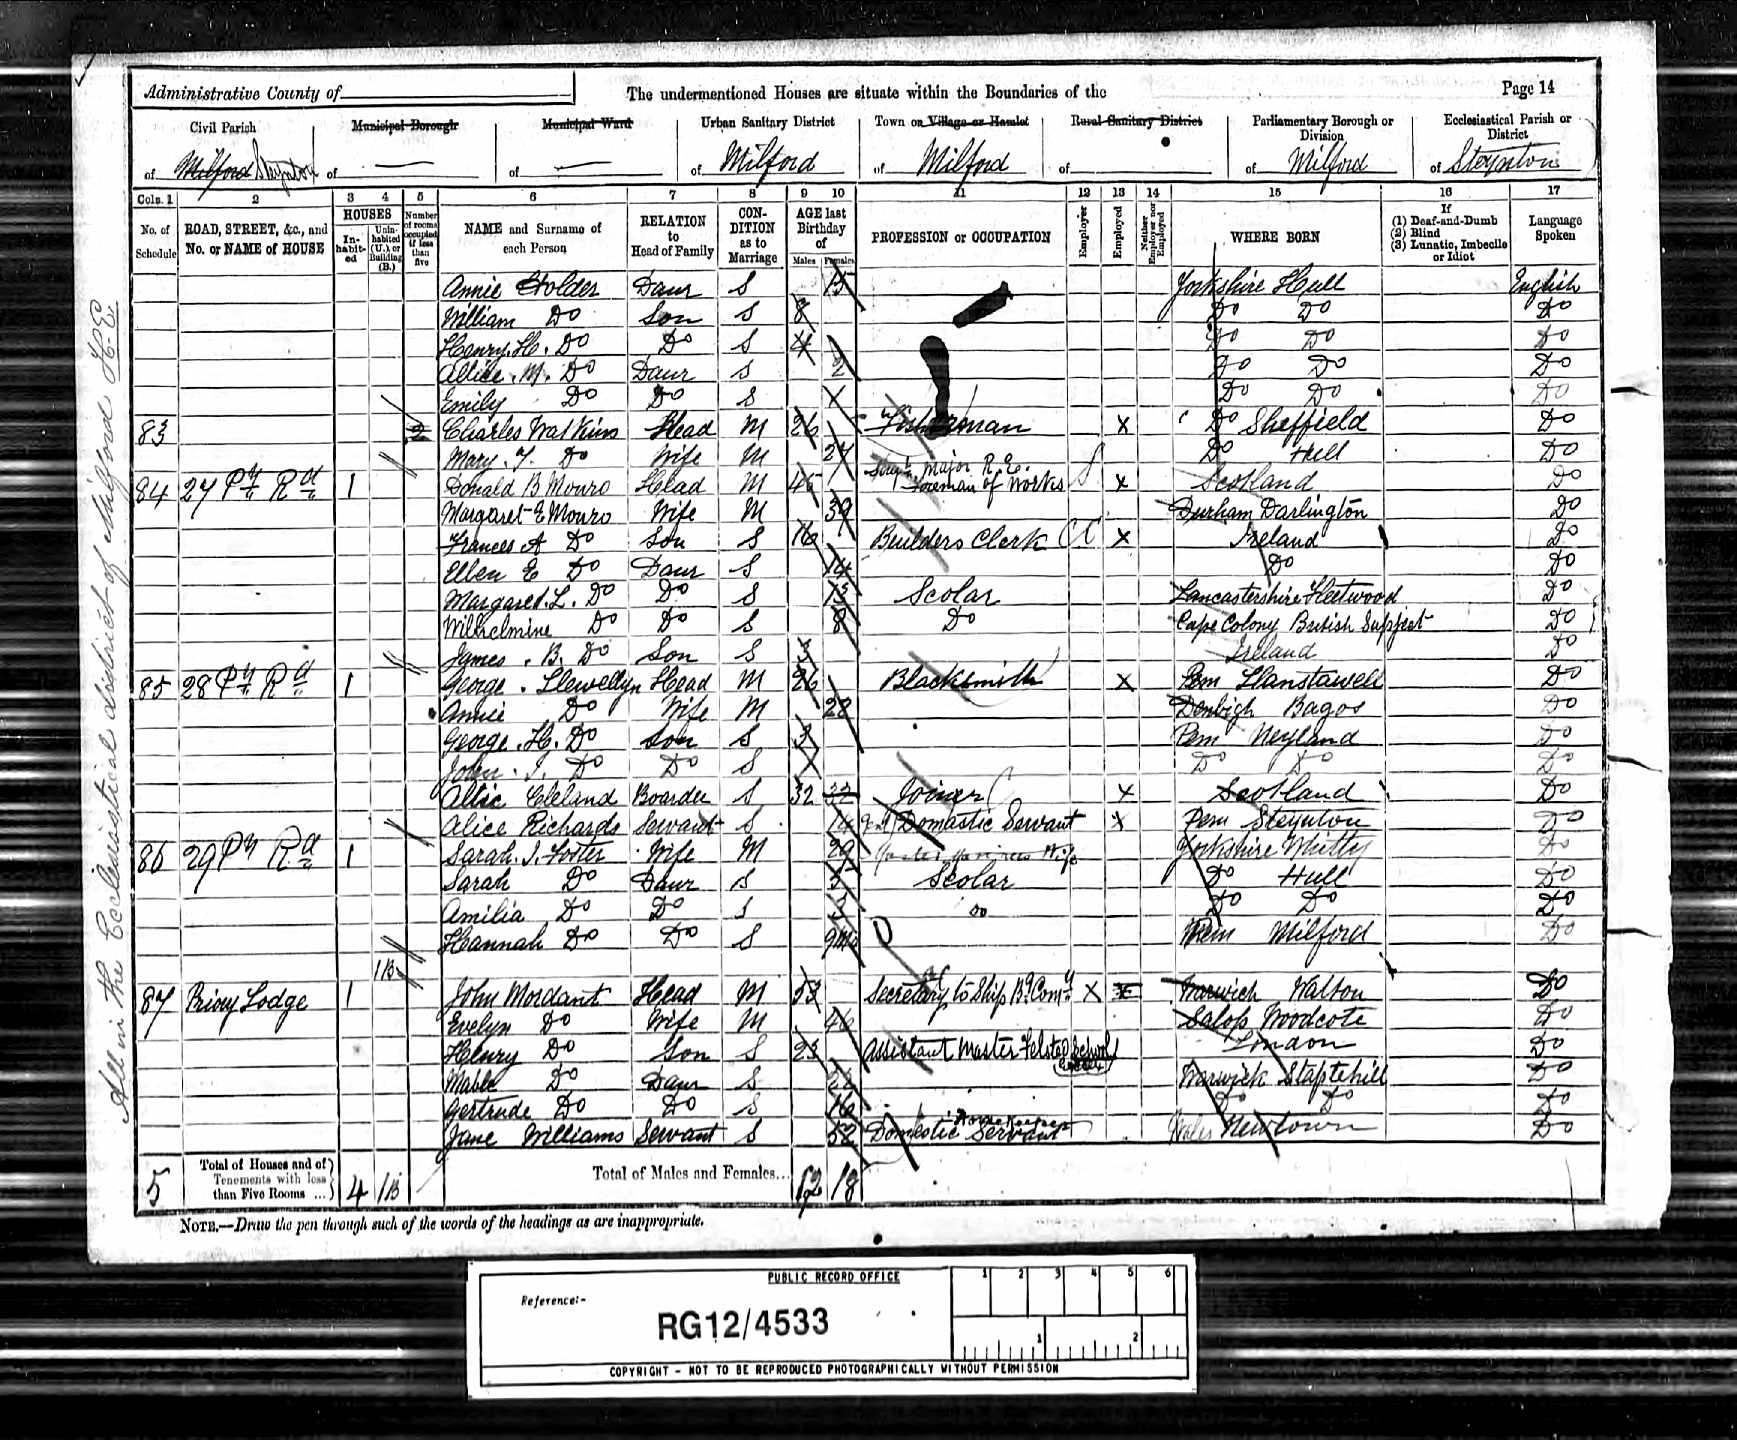 Administrative County of
The undermentioned Houses are situate within the Boundaries of the
Page 14
Civil Parish of Milford Steynton
Municipal Borough of —
Municipal Ward of —
Urban Sanitary District of Milford
Town or Village or Hamlet of Milford
Rural Sanitary District of
Parliamentary Borough or Division of Milford
Ecclesiastical Parish or District of Steynton
Cols. 1 2 3 4 5 6 7 8 9 10 11 12 13 14 15 16 17
No. of Schedule
ROAD, STREET, &c., and No. or NAME of HOUSE
HOUSES
In-habit-ed
Unin-habited (U.) or Building (B.)
Number of rooms occupied if less than five
NAME and Surname of each Person
RELATION to Head of Family
CON-DITION as to Marriage
AGE last Birthday of
Males Females
PROFESSION or OCCUPATION
Employer
Employed
Neither Employer nor Employed
WHERE BORN
If (1) Deaf-and-Dumb (2) Blind (3) Lunatic, Imbecile or Idiot
Language Spoken
Annie Holder Daur S 15 Yorkshire Hull English
William Do Son S 8 Do Do Do
Henry. H. Do Do S 4 Do Do Do
Alice. M. Do Daur S 2 Do Do Do
Emily Do Do S Do Do Do
83 2 Charles Watkins Head M 26 Fisherman X Do Sheffield Do
Mary. J. Do Wife M 27 Do Hull Do
84 27 Py Rd 1 Donald B Monro Head M 45 Major R.E. Foreman of Works X Scotland Do
Margaret E Monro Wife M 39 Durham Darlington Do
Frances A Do Son S 16 Builders Clerk X Ireland Do
Ellen E Do Daur S 14 Do Do
Margaret. L. Do Do S Scolar Lancastershire Fleetwood Do
Wilhelmine Do Do S 8 Do Cape Colony British Supject Do
James. B. Do Son S 3 Ireland Do
85 28 Py Rd 1 George. Llewellyn Head M 26 Blacksmith X Pem Llanstawell Do
Annie Do Wife M 28 Denbigh Bagos Do
George. H. Do Son S 3 Pem Neyland Do
John. I. Do Do S Do Do Do
Cleland Boarder S 32 32 Joiner X Scotland Do
Alice Richards Servant S 14 Domastic Servant X Pem Steynton Do
86 29 Py Rd 1 Sarah. J. Foster Wife M 29 Wife Yorkshire Whitty Do
Sarah Do Daur S 5 Scolar Do Hull Do
Amilia Do Do S 3 Do Do Do Do
Hannah Do Do S Pem Milford Do
1B
87 Priory Lodge 1 John Mordant Head M 53 Secretary to Ship Bg Comy X X Warwich Walton Do
Evelyn Do Wife M 46 Salop Woodcote Do
Henry Do Son S 23 Assistant Master Felsted School London Do
Mable Do Daur S 22 Warwick Staptehill Do
Gertrude Do Do S 16 Do Do Do
Jane Williams Servant S 52 Domestic Servant Wales Newtown Do
5 Total of Houses and of Tenements with less than Five Rooms ... 4 1B Total of Males and Females... 12 18
NOTE.—Draw the pen through such of the words of the headings as are inappropriate.
All in the Ecclesiastical district of Milford
PUBLIC RECORD OFFICE
Reference:-
RG12/4533
1 2 3 4 5 6
1 2
COPYRIGHT - NOT TO BE REPRODUCED PHOTOGRAPHICALLY WITHOUT PERMISSION